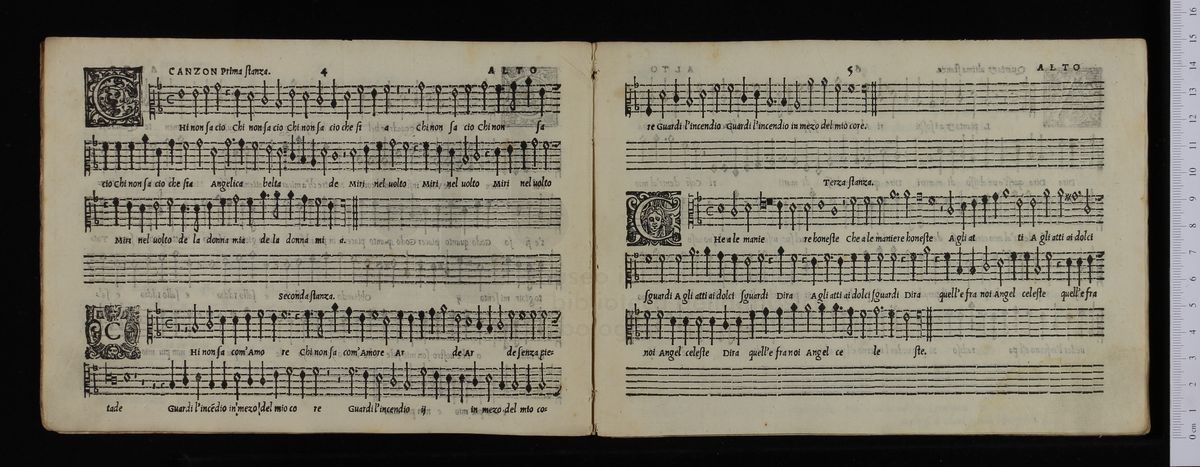 CANZON Prima stanza. 4 ALTO
C Hi non sa cio Chi non sa cio Chi non sa cio che si a Chi non sa cio Chi non sa
cio Chi non sa cio che sia Angelica belta de Miri nel uolto Miri nel uolto Miri nel uolto
Miri nel uolto de la donna mia de la donna mi a.
seconda stanza.
C Hi non sa com' Amo re Chi non sa com' Amore Ar de Ar de senza pie-
tade Guardi l'incēdio in mezo del mio co re Guardi l'incendio ij in mezo del mio co-
5 ALTO
re Guardi l'incendio Guardi l'incendio in mezo del mio core.
Terza stanza.
C He a le manie re honeste Che a le maniere honeste A gli at ti A gli atti ai dolci
sguardi A gli atti ai dolci sguardi Dira A gli atti ai dolci sguardi Dira quell'e fra noi Angel celeste quell'e fra
noi Angel celeste Dira quell'e fra noi Angel ce le ste.